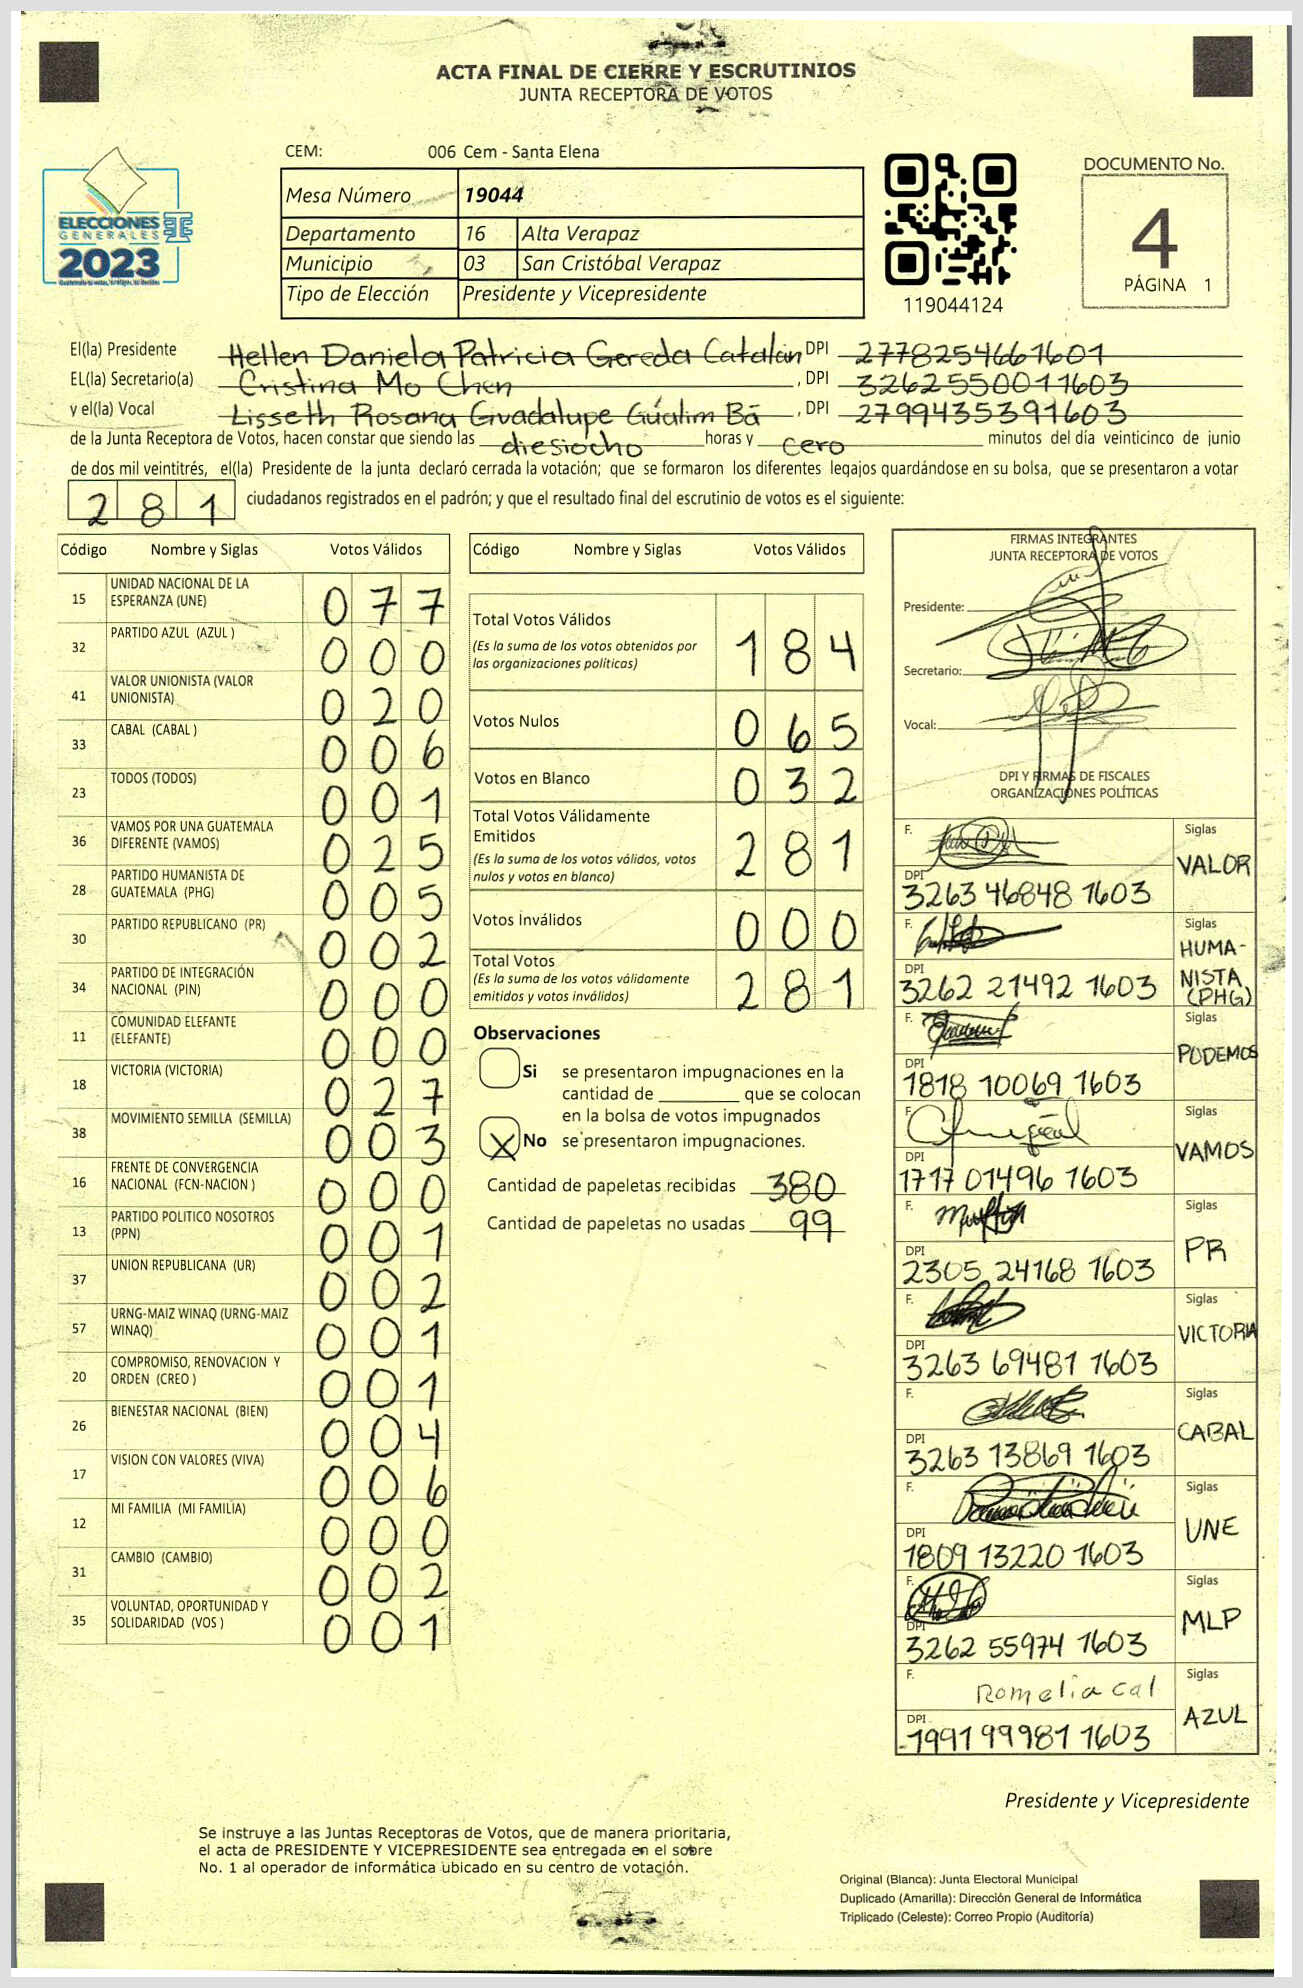 ACTA FINAL DE CIERRE Y ESCRUTINIOS
JUNTA RECEPTORA DE VOTOS
CEM: 006 Cem - Santa Elena
Mesa Número 19044
Departamento 16 Alta Verapaz
Municipio 03 San Cristóbal Verapaz
Tipo de Elección Presidente y Vicepresidente
ELECCIONES
GENERALES
2023
119044124
DOCUMENTO No.
4
PÁGINA 1
El(la) Presidente Hellen Daniela Patricia Gereda Catalán DPI 2778254661601
EL(la) Secretario(a) Cristina Mo Chen, DPI 3262550011603
y el(la) Vocal Lisseth Rosana Guadalupe Güalim Bá, DPI 2799435391603
de la Junta Receptora de Votos, hacen constar que siendo las diesiocho horas y cero minutos del día veinticinco de junio
de dos mil veintitrés, el(la) Presidente de la junta declaró cerrada la votación; que se formaron los diferentes legajos guardándose en su bolsa, que se presentaron a votar
281 ciudadanos registrados en el padrón; y que el resultado final del escrutinio de votos es el siguiente:
Código Nombre y Siglas Votos Válidos
15 UNIDAD NACIONAL DE LA ESPERANZA (UNE) 077
32 PARTIDO AZUL (AZUL ) 000
41 VALOR UNIONISTA (VALOR UNIONISTA) 020
33 CABAL (CABAL ) 006
23 TODOS (TODOS) 001
36 VAMOS POR UNA GUATEMALA DIFERENTE (VAMOS) 025
28 PARTIDO HUMANISTA DE GUATEMALA (PHG) 005
30 PARTIDO REPUBLICANO (PR) 002
34 PARTIDO DE INTEGRACIÓN NACIONAL (PIN) 000
11 COMUNIDAD ELEFANTE (ELEFANTE) 000
18 VICTORIA (VICTORIA) 027
38 MOVIMIENTO SEMILLA (SEMILLA) 003
16 FRENTE DE CONVERGENCIA NACIONAL (FCN-NACION ) 000
13 PARTIDO POLITICO NOSOTROS (PPN) 001
37 UNION REPUBLICANA (UR) 002
57 URNG-MAIZ WINAQ (URNG-MAIZ WINAQ) 001
20 COMPROMISO, RENOVACION Y ORDEN (CREO ) 001
26 BIENESTAR NACIONAL (BIEN) 004
17 VISION CON VALORES (VIVA) 006
12 MI FAMILIA (MI FAMILIA) 000
31 CAMBIO (CAMBIO) 002
35 VOLUNTAD, OPORTUNIDAD Y SOLIDARIDAD (VOS ) 001
Código Nombre y Siglas Votos Válidos
Total Votos Válidos 184
(Es la suma de los votos obtenidos por
las organizaciones políticas)
Votos Nulos 065
Votos en Blanco 032
Total Votos Válidamente
Emitidos 281
(Es la suma de los votos válidos, votos
nulos y votos en blanco)
Votos Inválidos 000
Total Votos 281
(Es la suma de los votos válidamente
emitidos y votos inválidos)
Observaciones
Si se presentaron impugnaciones en la
cantidad de ________ que se colocan
en la bolsa de votos impugnados
X No se presentaron impugnaciones.
Cantidad de papeletas recibidas 380
Cantidad de papeletas no usadas 99
FIRMAS INTEGRANTES
JUNTA RECEPTORA DE VOTOS
Presidente:
Secretario:
Vocal:
DPI Y FIRMAS DE FISCALES
ORGANIZACIONES POLÍTICAS
F. Siglas
VALOR
DPI
3263 46848 1603
F. Siglas
HUMA-
NISTA
(PHG)
DPI
3262 21492 1603
F. Siglas
PODEMOS
DPI
1818 10069 1603
F. Siglas
VAMOS
DPI
1717 01496 1603
F. Siglas
PR
DPI
2305 24168 1603
F. Siglas
VICTORIA
DPI
3263 69481 1603
F. Siglas
CABAL
DPI
3263 13869 1603
F. Siglas
UNE
DPI
1809 13220 1603
F. Siglas
MLP
DPI
3262 55974 1603
F. Romelia cal Siglas
AZUL
DPI
1991 99981 1603
Presidente y Vicepresidente
Se instruye a las Juntas Receptoras de Votos, que de manera prioritaria,
el acta de PRESIDENTE Y VICEPRESIDENTE sea entregada en el sobre
No. 1 al operador de informática ubicado en su centro de votación.
Original (Blanca): Junta Electoral Municipal
Duplicado (Amarilla): Dirección General de Informática
Triplicado (Celeste): Correo Propio (Auditoría)